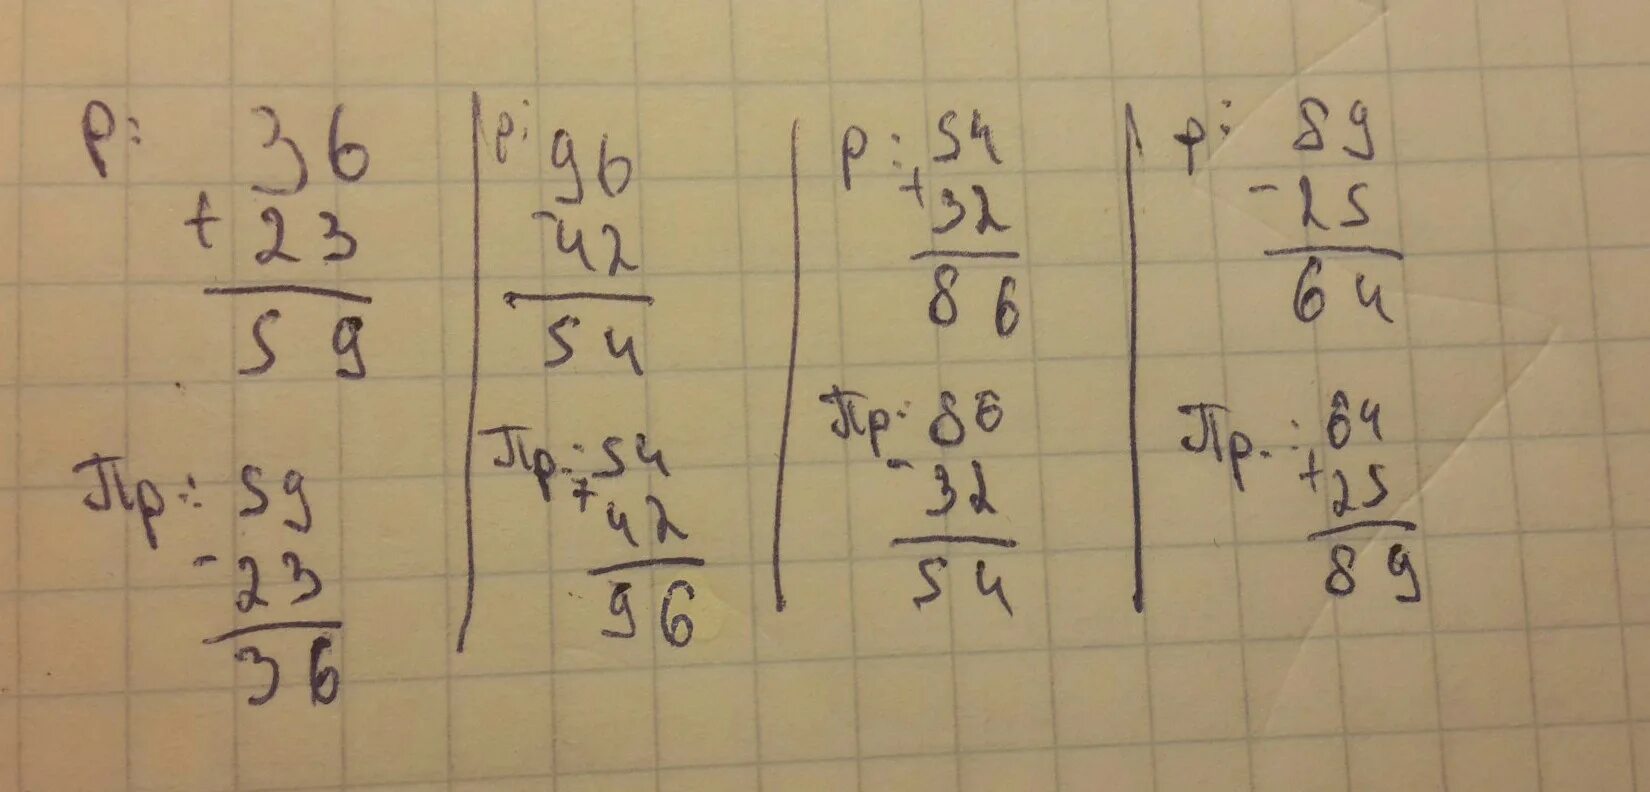 Р: 36
+ 23
59
Пр: 59
- 23
36
р: 96
- 42
54
Пр: 54
+ 42
96
р: 54
+ 32
86
Пр: 86
- 32
54
р: 89
- 25
64
Пр.: 64
+ 25
89